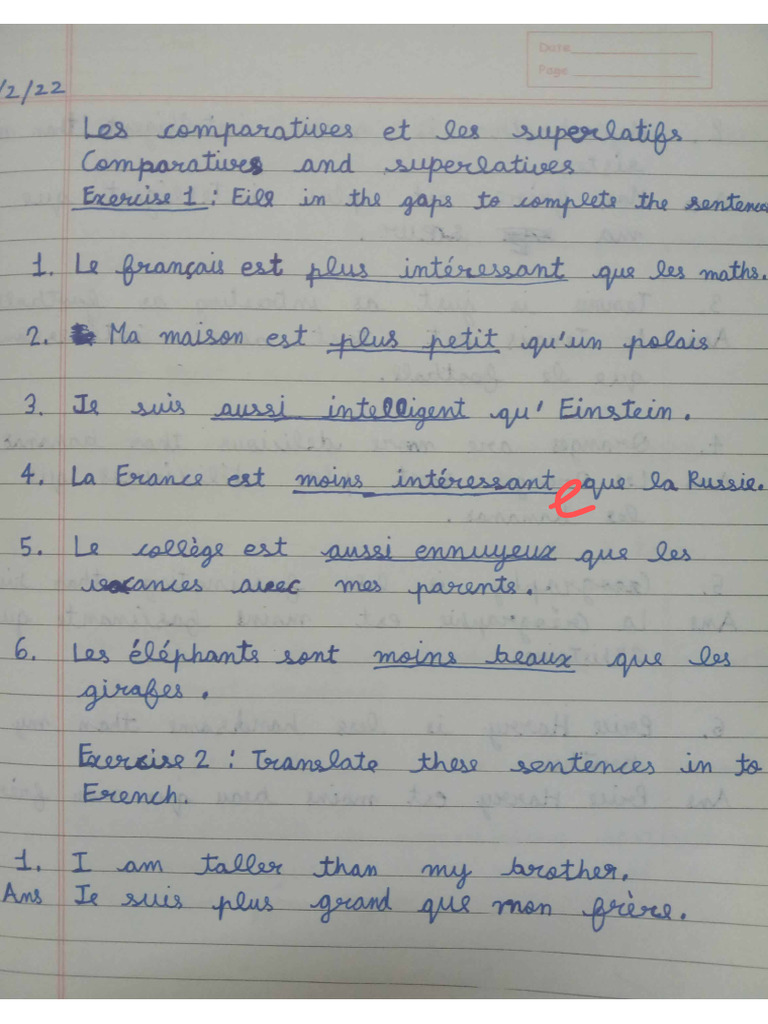 Date
Page
/2/22
Les comparatives et les superlatifs
Comparatives and superlatives
Exercise 1 : Fill in the gaps to complete the sentences
1. Le français est plus intéressant que les maths.
2. Ma maison est plus petit qu'un polais
3. Je suis aussi intelligent qu' Einstein.
4. La France est moins intéressant e que la Russie.
5. Le collège est aussi ennuyeux que les
vacances avec mes parents.
6. Les éléphants sont moins beaux que les
girafes.
Exercise 2 : Translate these sentences in to
French.
1. I am taller than my brother.
Ans Je suis plus grand que mon frère.